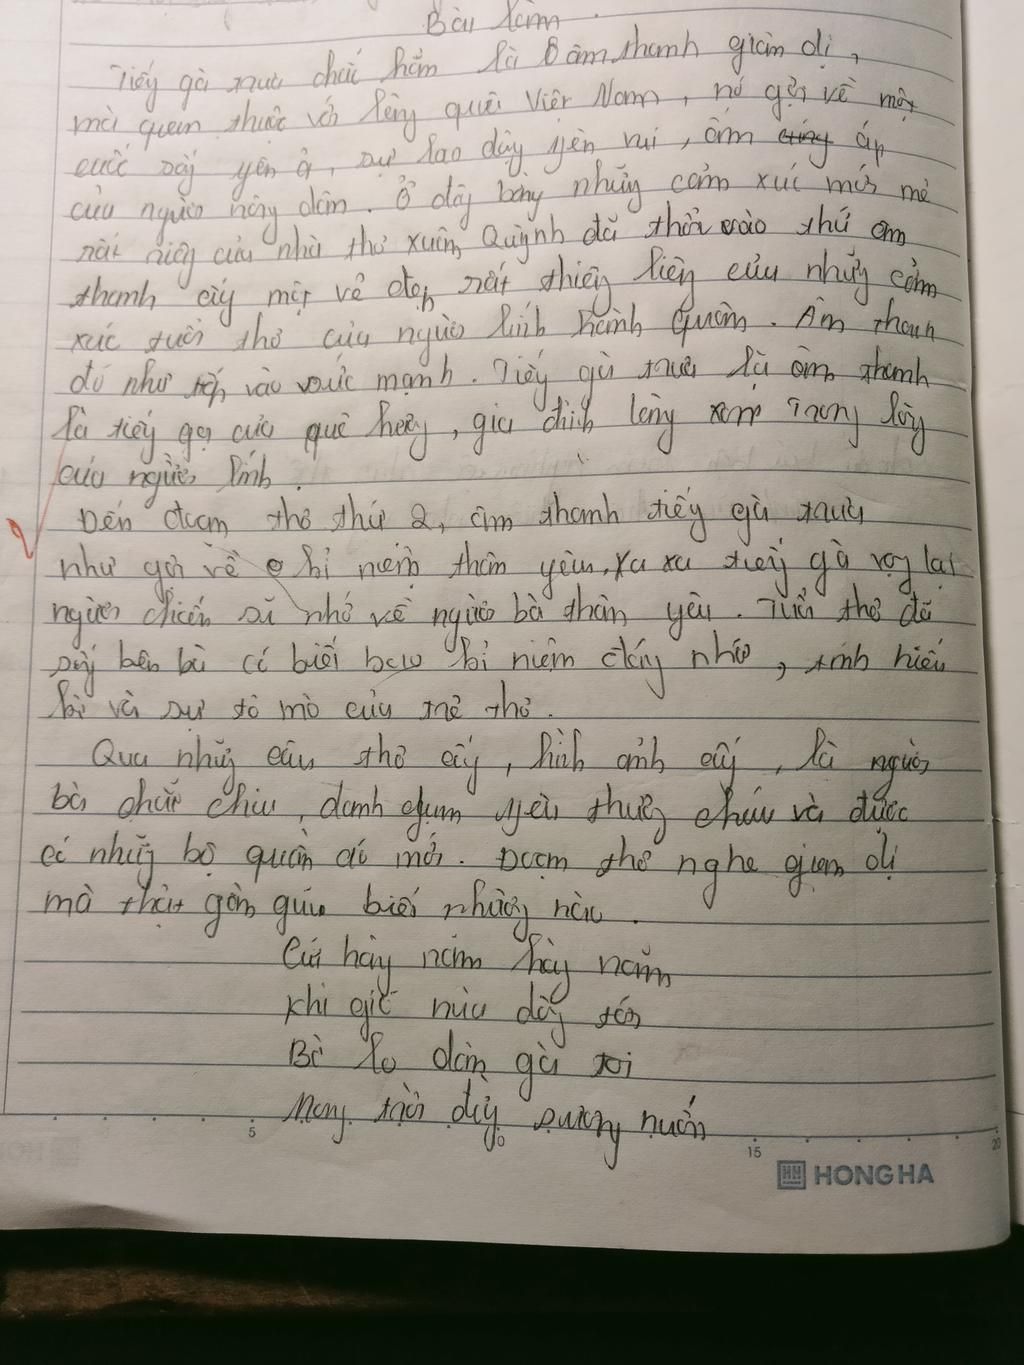 Bài làm
Tiếng gà trưa chắc hẳn là âm thanh giản dị,
mà quen thuộc với làng quê Việt Nam, nó gợi về một
cuộc sống yên ả, sự lao động yên vui, ấm áp
của người nông dân. Ở đây bằng những cảm xúc mới mẻ
rất riêng của nhà thơ Xuân Quỳnh đã thổi vào thứ âm
thanh ấy một vẻ đẹp rất thiêng liêng của những cảm
xúc tuổi thơ của người lính hành quân. Âm thanh
đó như tiếp vào sức mạnh. Tiếng gà trưa là âm thanh
là tiếng gọi của quê hương, gia đình làng xóm Trong lòng
của người lính.
Đến đoạn thơ thứ 2, âm thanh tiếng gà trưa
như gợi về kỉ niệm thân yêu, xa xa tiếng gà vọng lại
người chiến sĩ nhớ về người bà thân yêu. Tuổi thơ đã
sống bên bà có biết bao kỉ niệm đáng nhớ, tính hiếu
kì và sự tò mò của trẻ thơ.
Qua những câu thơ ấy, hình ảnh ấy, là người
bà chắt chiu, dành dụm yêu thương cháu và được
có những bộ quần áo mới. Đoạn thơ nghe giản dị
mà thật gần gũi biết nhường nào.
Cứ hàng năm hàng năm
Khi gió mùa đông tới
Bà lo đàn gà toi
Mong trời đừng sương muối
5
15
20
HH HONG HA